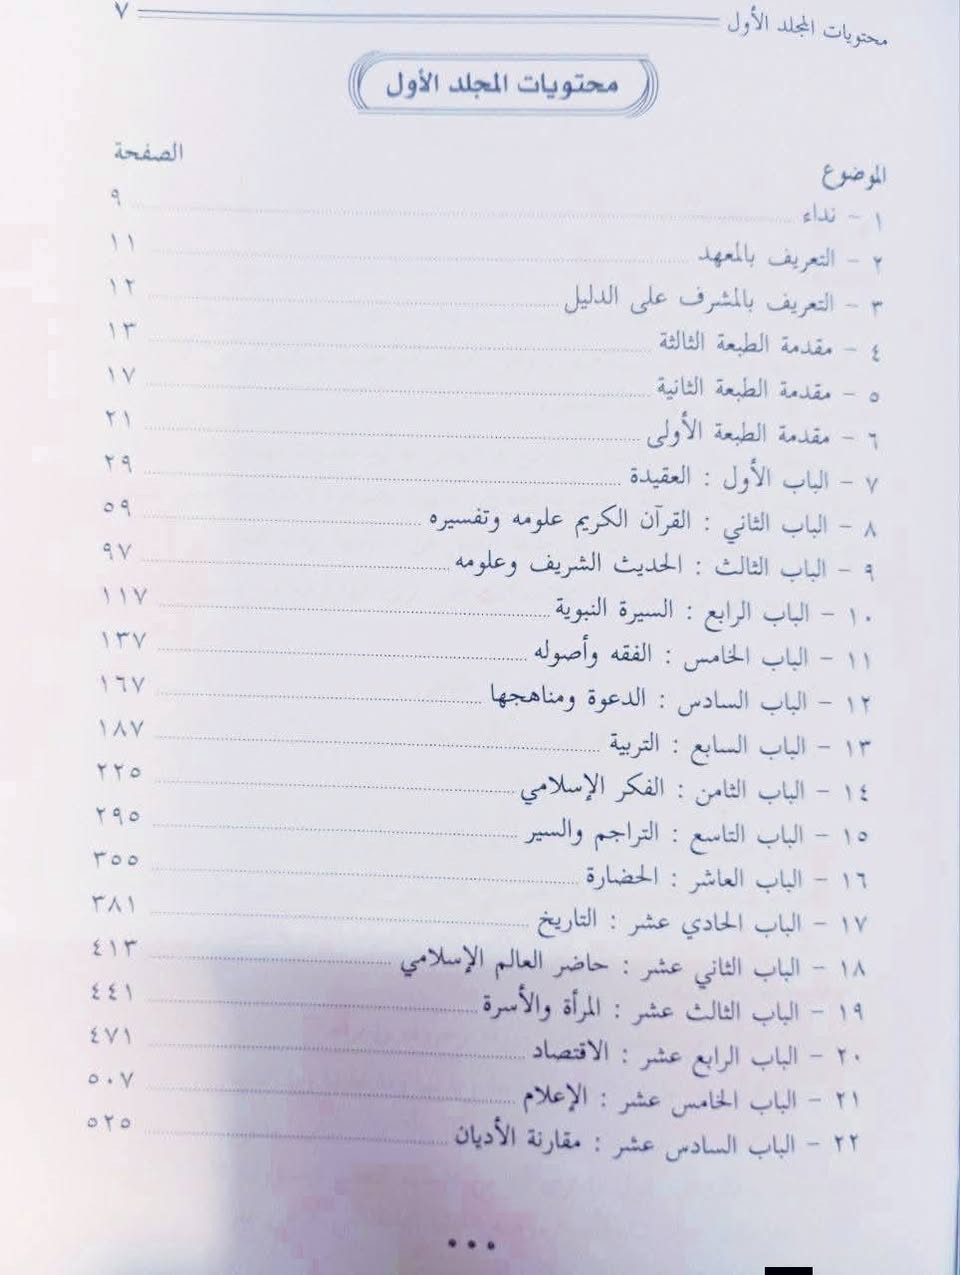 محتويات المجلد الأول ٧
محتويات المجلد الأول
الموضوع الصفحة
١ - نداء ٩
٢ - التعريف بالمعهد ١١
٣ - التعريف بالمشرف على الدليل ١٢
٤ - مقدمة الطبعة الثالثة ١٣
٥ - مقدمة الطبعة الثانية ١٧
٦ - مقدمة الطبعة الأولى ٢١
٧ - الباب الأول : العقيدة ٢٩
٨ - الباب الثاني : القرآن الكريم علومه وتفسيره ٥٩
٩ - الباب الثالث : الحديث الشريف وعلومه ٩٧
١٠ - الباب الرابع : السيرة النبوية ١١٧
١١ - الباب الخامس : الفقه وأصوله ١٣٧
١٢ - الباب السادس : الدعوة ومناهجها ١٦٧
١٣ - الباب السابع : التربية ١٨٧
١٤ - الباب الثامن : الفكر الإسلامي ٢٢٥
١٥ - الباب التاسع : التراجم والسير ٢٩٥
١٦ - الباب العاشر : الحضارة ٣٥٥
١٧ - الباب الحادي عشر : التاريخ ٣٨١
١٨ - الباب الثاني عشر : حاضر العالم الإسلامي ٤١٣
١٩ - الباب الثالث عشر : المرأة والأسرة ٤٤١
٢٠ - الباب الرابع عشر : الاقتصاد ٤٧١
٢١ - الباب الخامس عشر : الإعلام ٥٠٧
٢٢ - الباب السادس عشر : مقارنة الأديان ٥٢٥